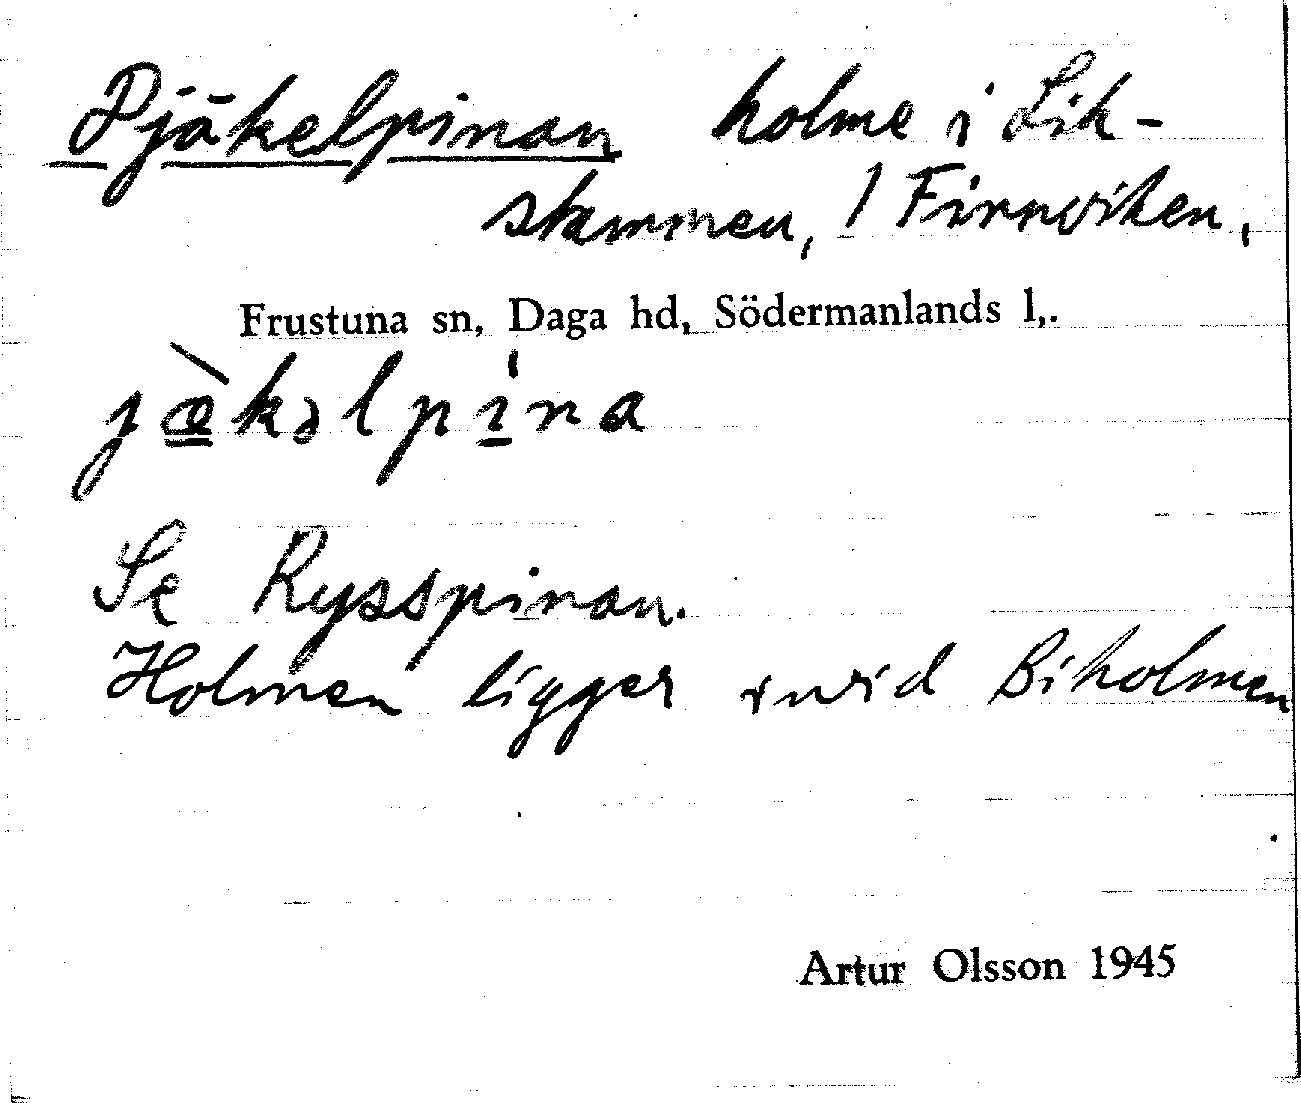 Djäkelpinan holme i Lik-
stammen, / Finnviken,
Frustuna sn, Daga hd, Södermanlands l,.
jæ̀kəlpìna
Se Rysspinan.
Holmen ligger invid Biholmen
Artur Olsson 1945